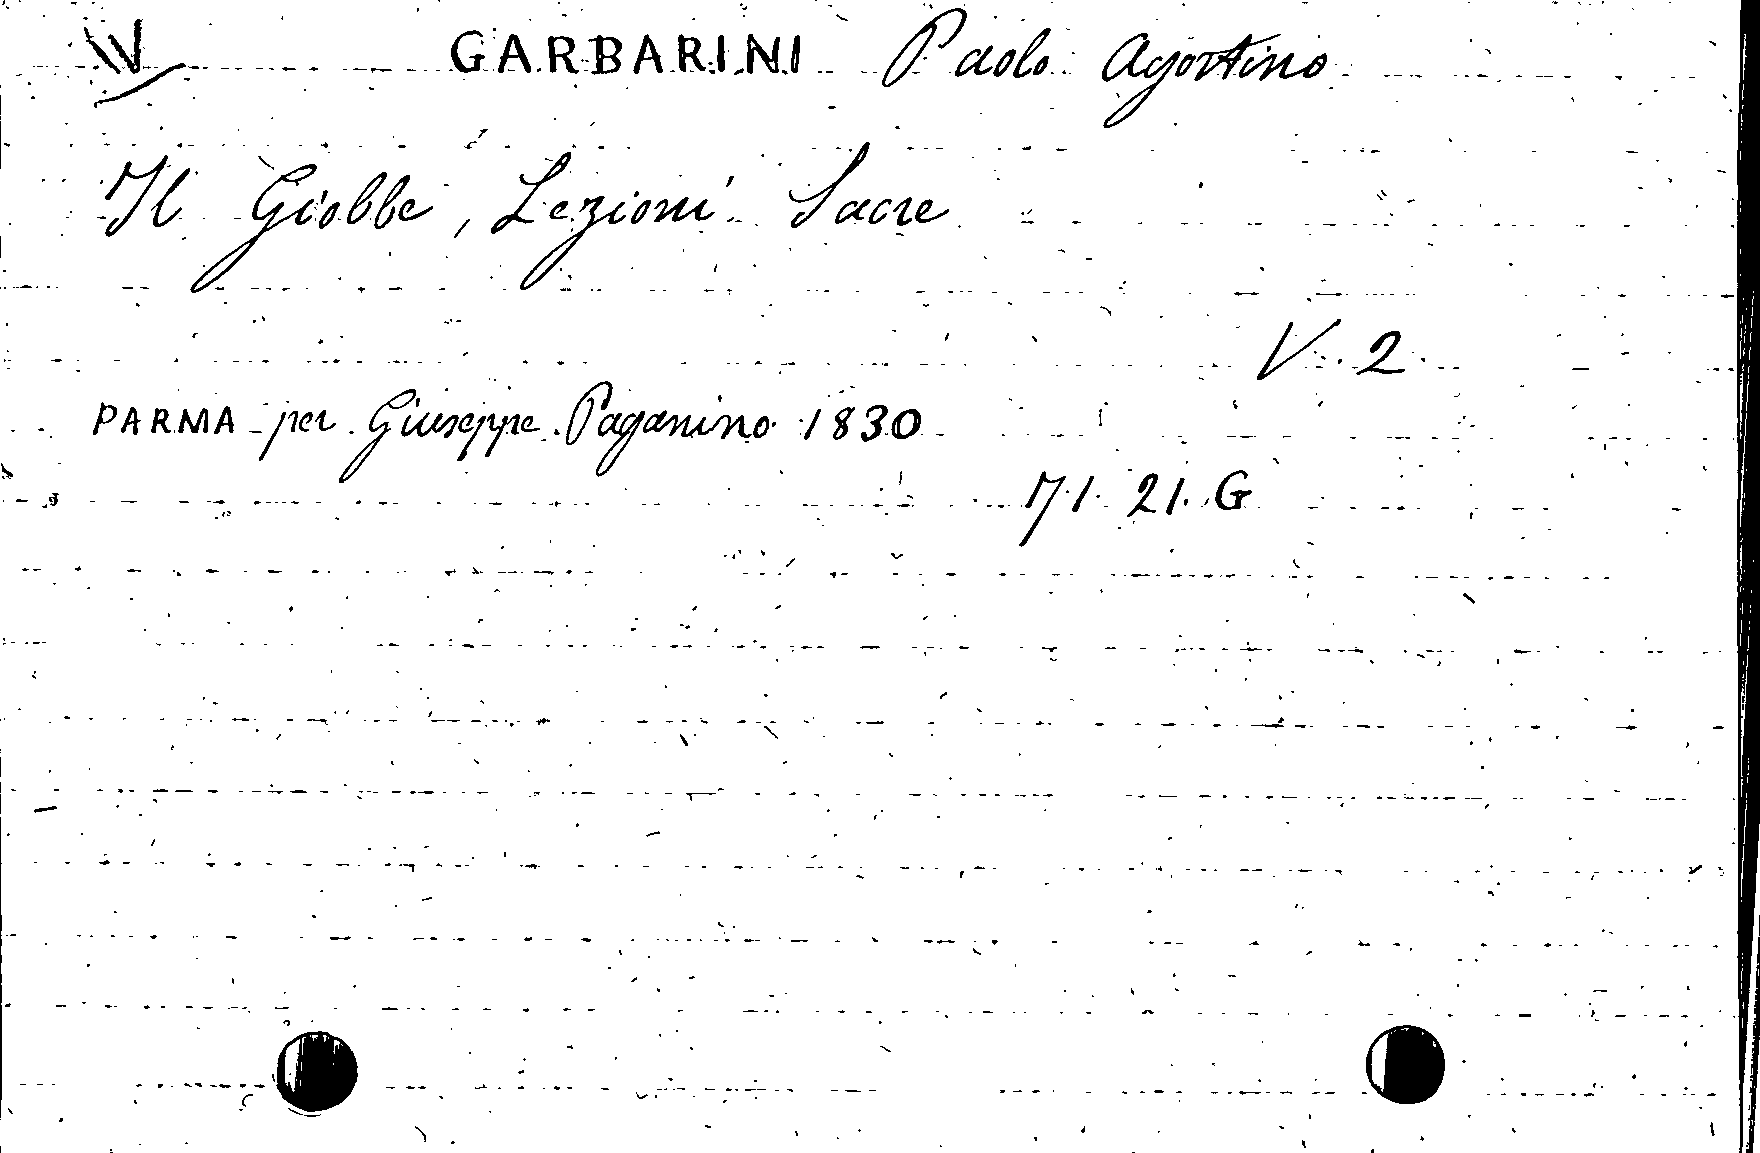 IV GARBARINI Paolo Agostino
Il Giobbe, Lezioni Sacre
V. 2
PARMA per Giuseppe Paganino 1830
71. 21. G